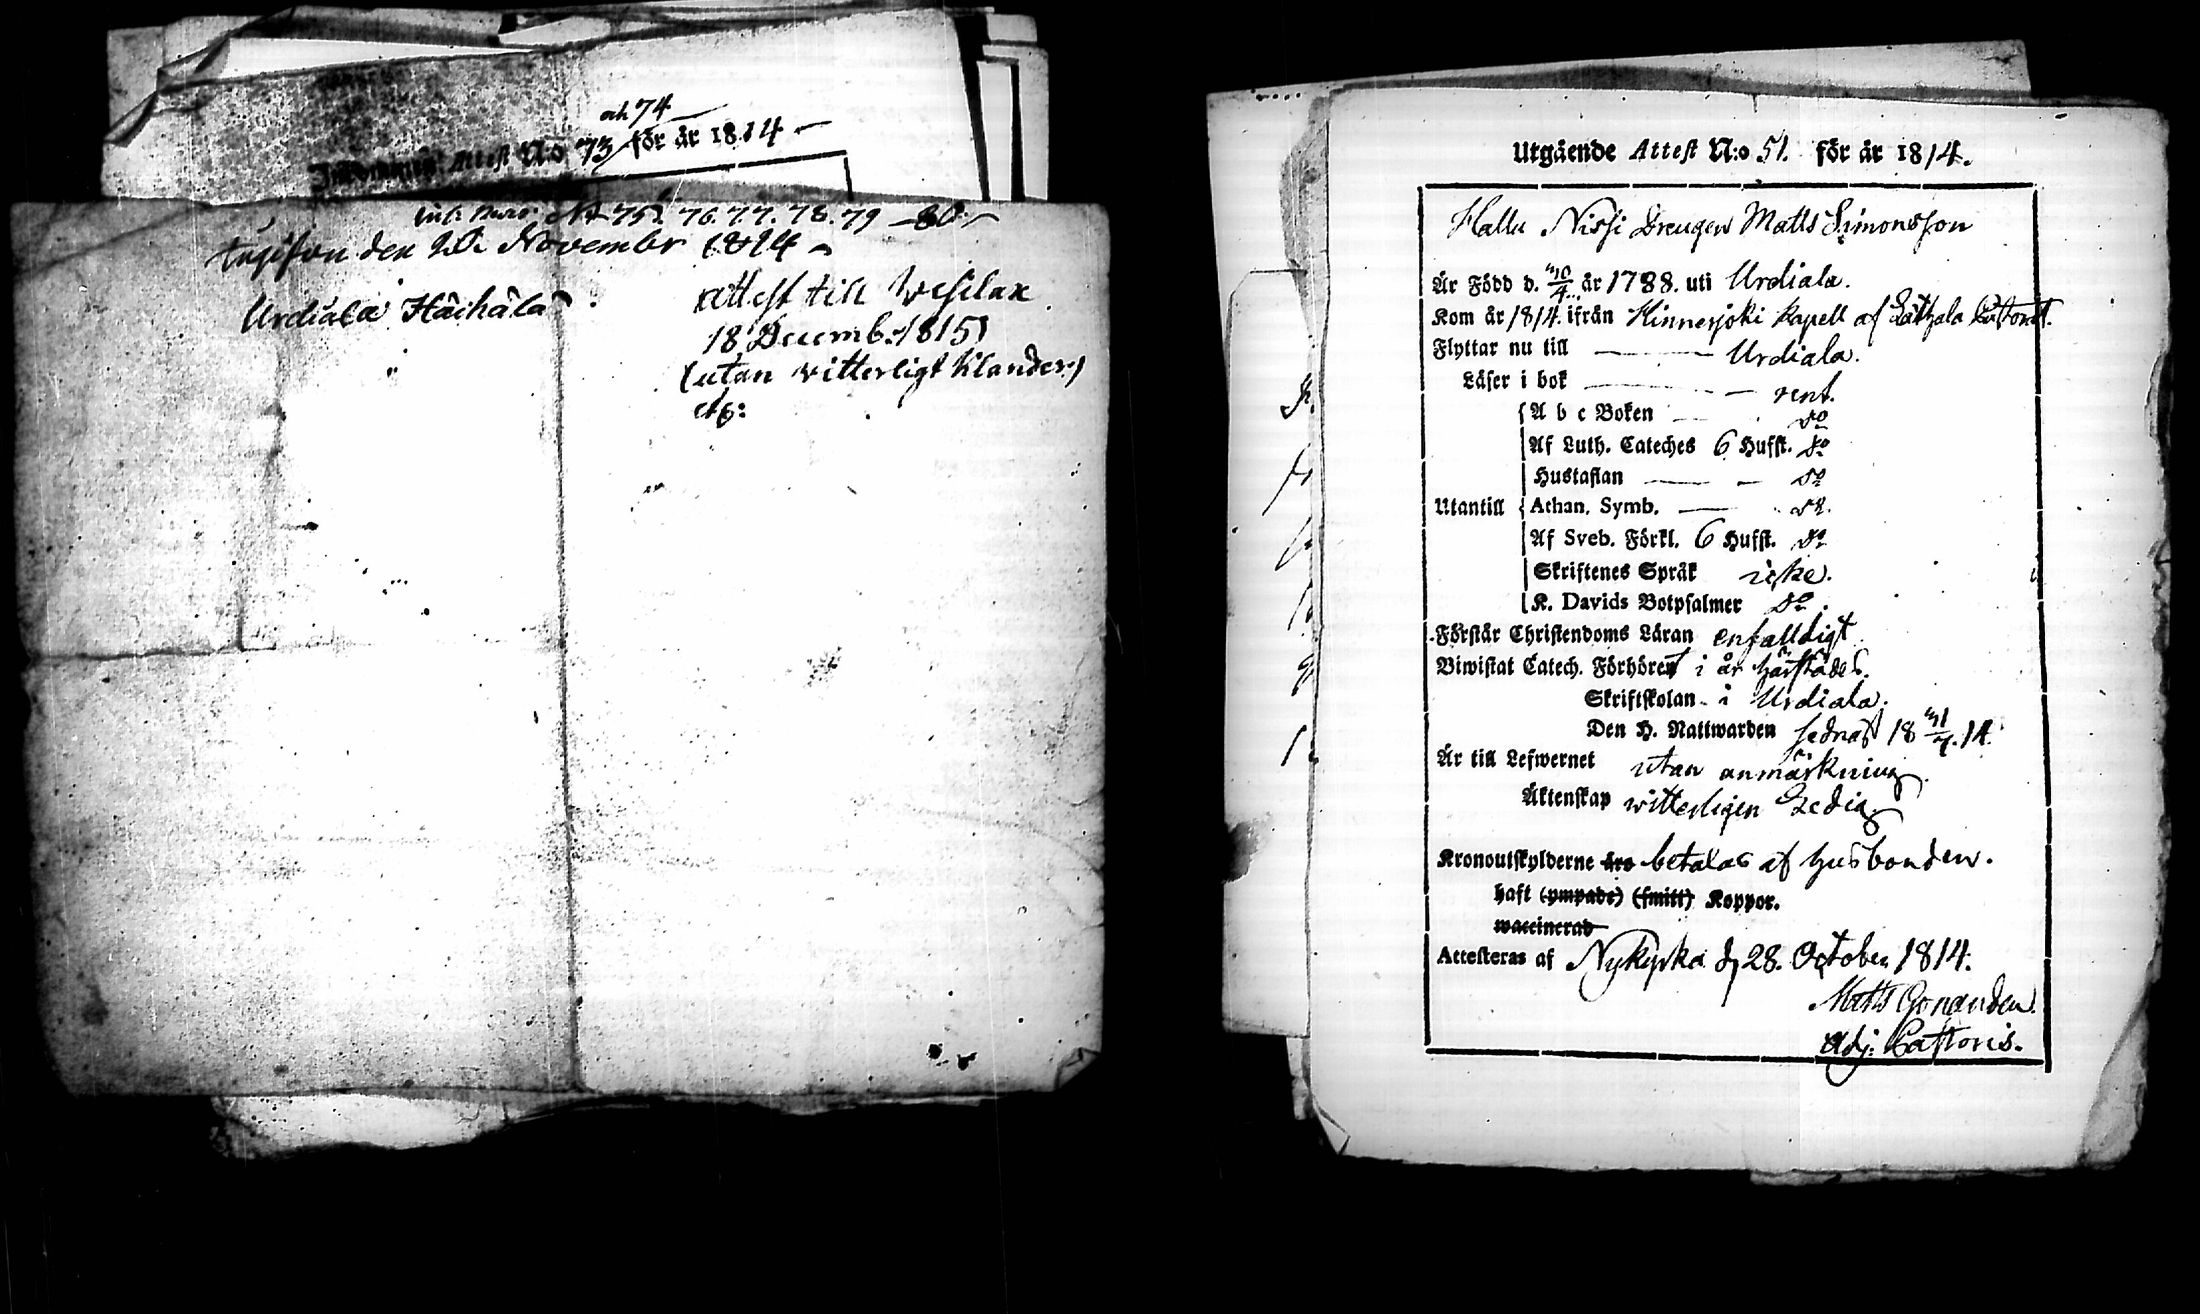 och 74
Attest N:o 73 för år 1814
No 75. 76. 77. 78. 79 - 80
den 20. November 1814
Urdiala Haihala
attest till Wesilax
18 Decemb. 1815
(utan witterligt klander)
etc:
Utgående Attest N:o 51. för år 1814.
Hallu Nissi Drengen Matts Simonsson
Är Född d. 10/4 år 1788. uti Urdiala.
Kom år 1814. ifrån Hinnerjoki kapell af
Flyttar nu till Urdiala.
Läser i bok rent.
A b c Boken do
Af Luth. Cateches 6 Hufst. do
Hustaflan do
Utantill Athan. Symb. do
Af Sveb. Förkl. 6 Hufst. do
Skriftenes Språk icke.
K. Davids Botpsalmer do
Förstår Christendoms Läran enfalldigt
Biwistat Catech. Förhöret i år härstädes.
Skriftskolan i Urdiala.
Den H. Nattwarden sednast 18 11/7. 14.
Är till Lefwernet utan anmärkning.
Äktenskap witterligen Ledig
Kronoutskylderne äro betalas af husbonden.
haft (ympade) (smitt) Koppor.
waccinerad
Attesteras af Nykyrka d 28. October 1814.
Matts Gonanden.
Adj: Pastoris.